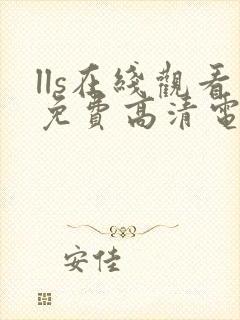 lls在綫觀看
免費高清電
安佳